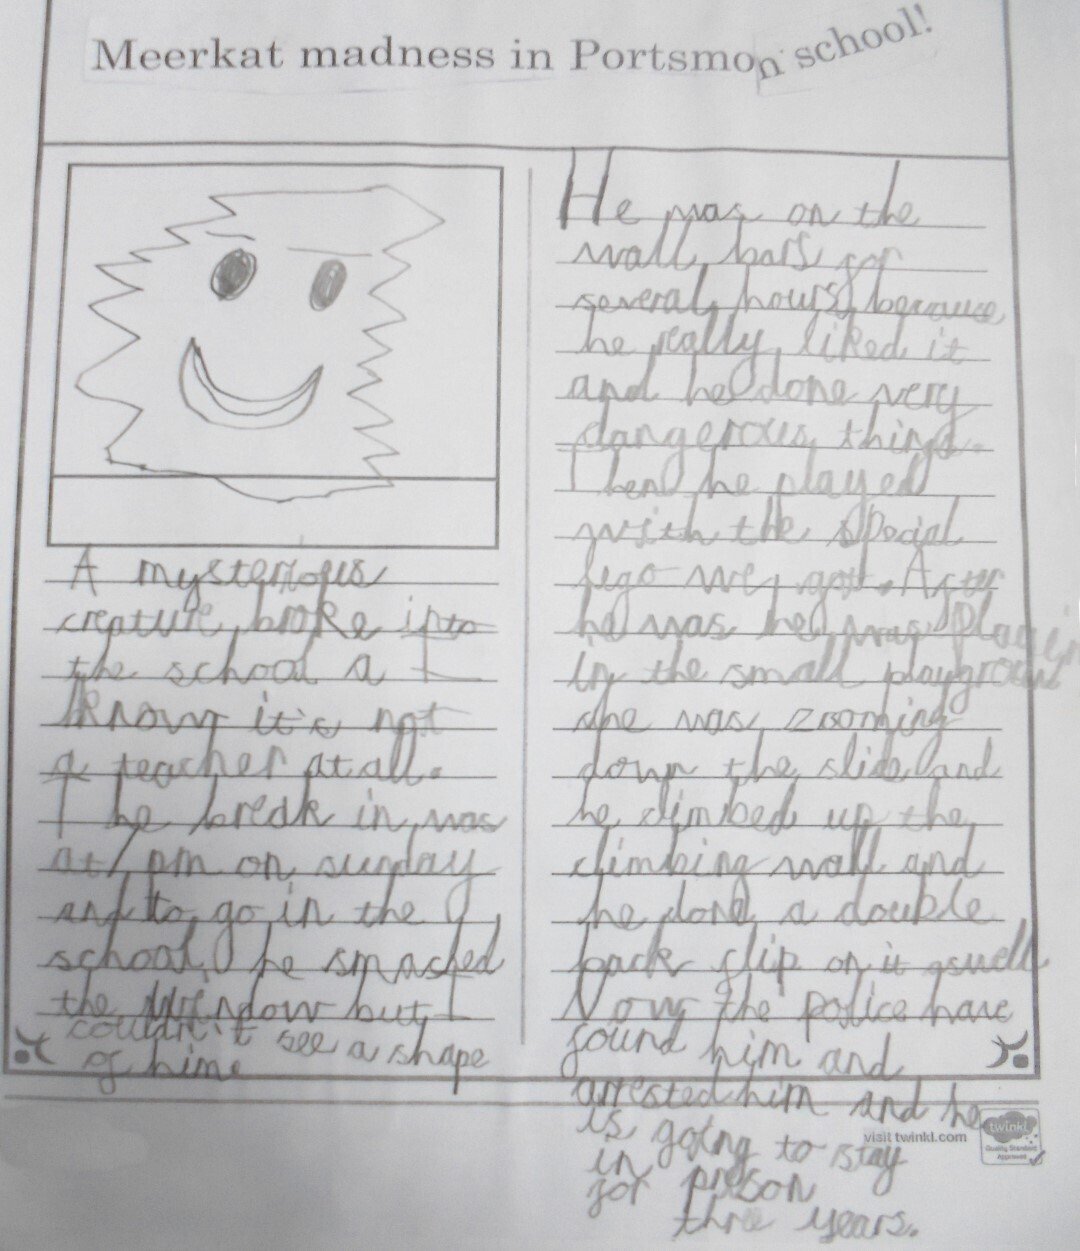 Meerkat madness in Portsmon school!
A mysterious
creature broke into
the school a I
know it's not
a teacher at all.
The break in was
at 1 pm on sunday
and to go in the
school, he smashed
the window but I
couldn't see a shape
of him.
He was on the
wall bars for
several hours because
he really liked it
and he done very
dangerous things.
Then he played
with the special
lego we got. After
he was he was
in the small playground
she was zooming
down the slide and
he climbed up the
climbing wall and
he done a double
back flip on it aswell
Now the police have
found him and
arrested him and he
is going to stay
in prison
for three years.
visit twinkl.com
twinkl
Quality Standard
Approved